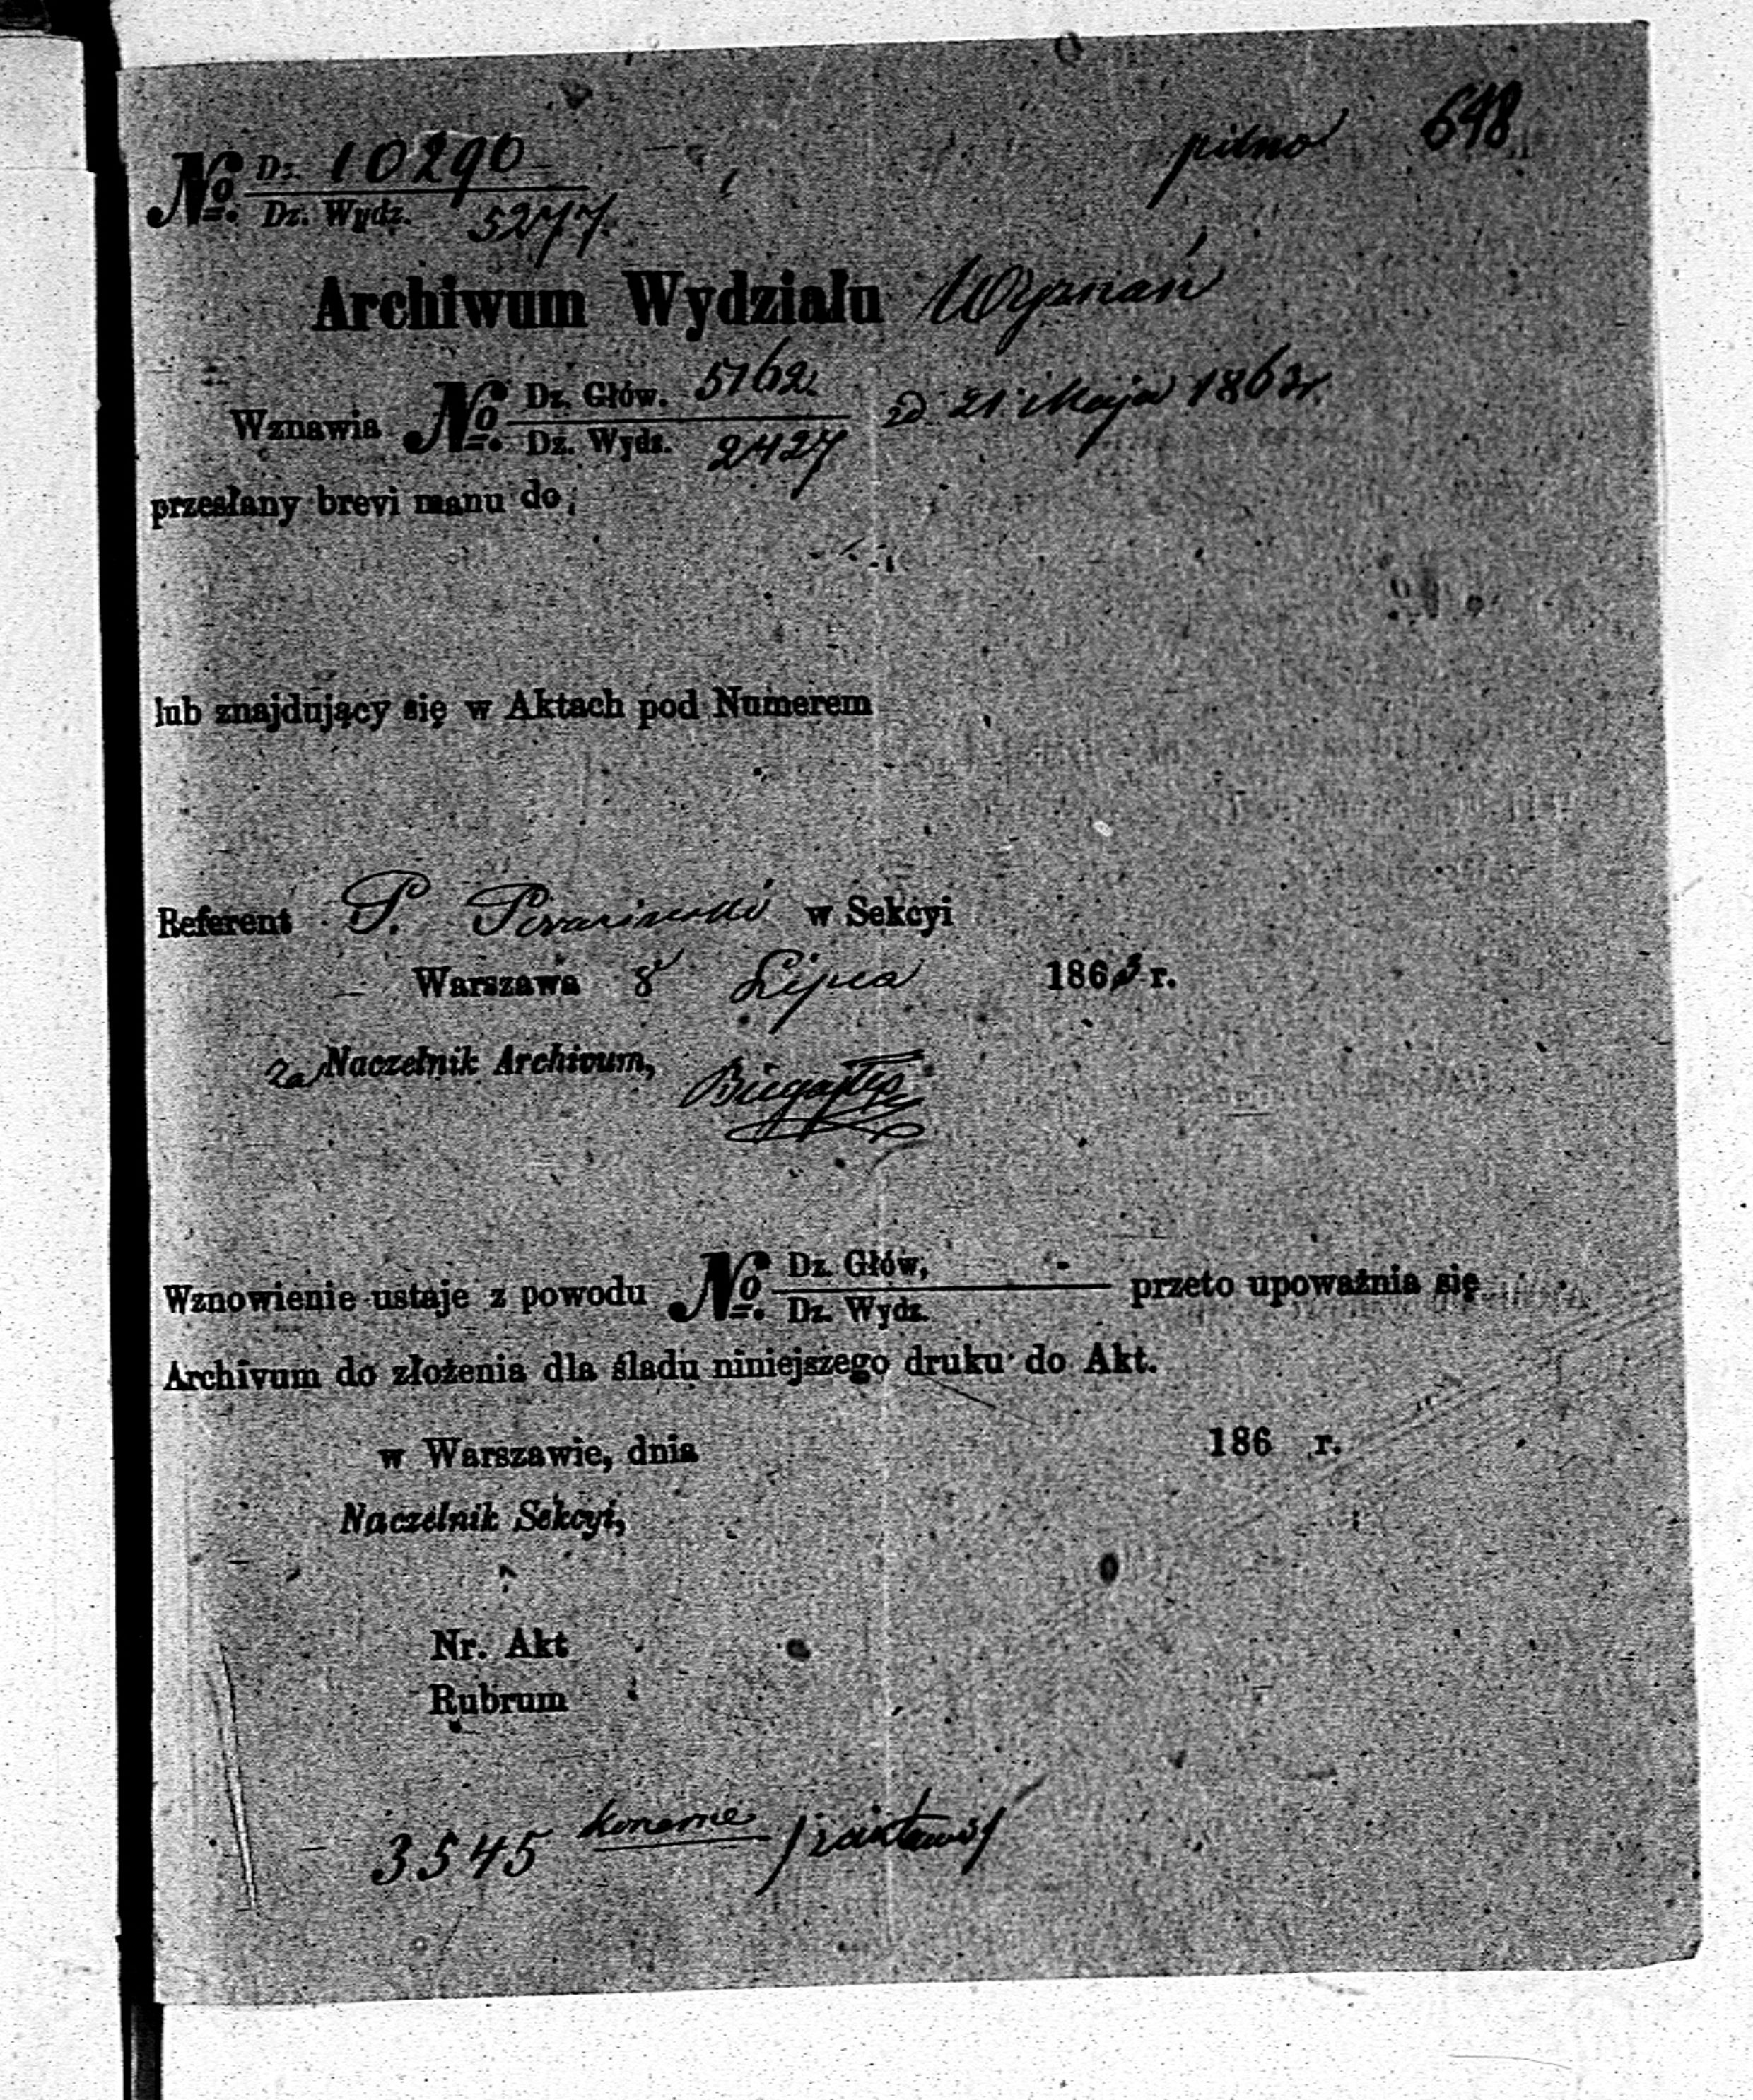 pilno 648
№ Dz. 10290
Dz. Wydz. 5277.
Archiwum Wydziału Wyznań
Wznawia № Dz. Głów. 5162. d 21 Maja 1863 r.
Dz. Wydz. 2427
przesłany brevi manu do
lub znajdujący się w Aktach pod Numerem
Referent P. w Sekcyi
Warszawa 8 Lipca 1863 r.
za Naczelnik Archivum,
Wznowienie ustaje z powodu № Dz. Głów. przeto upoważnia się
Dz. Wydz.
Archivum do złożenia dla śladu niniejszego druku do Akt.
w Warszawie, dnia 186 r.
Naczelnik Sekcyi,
Nr. Akt
Rubrum
3545